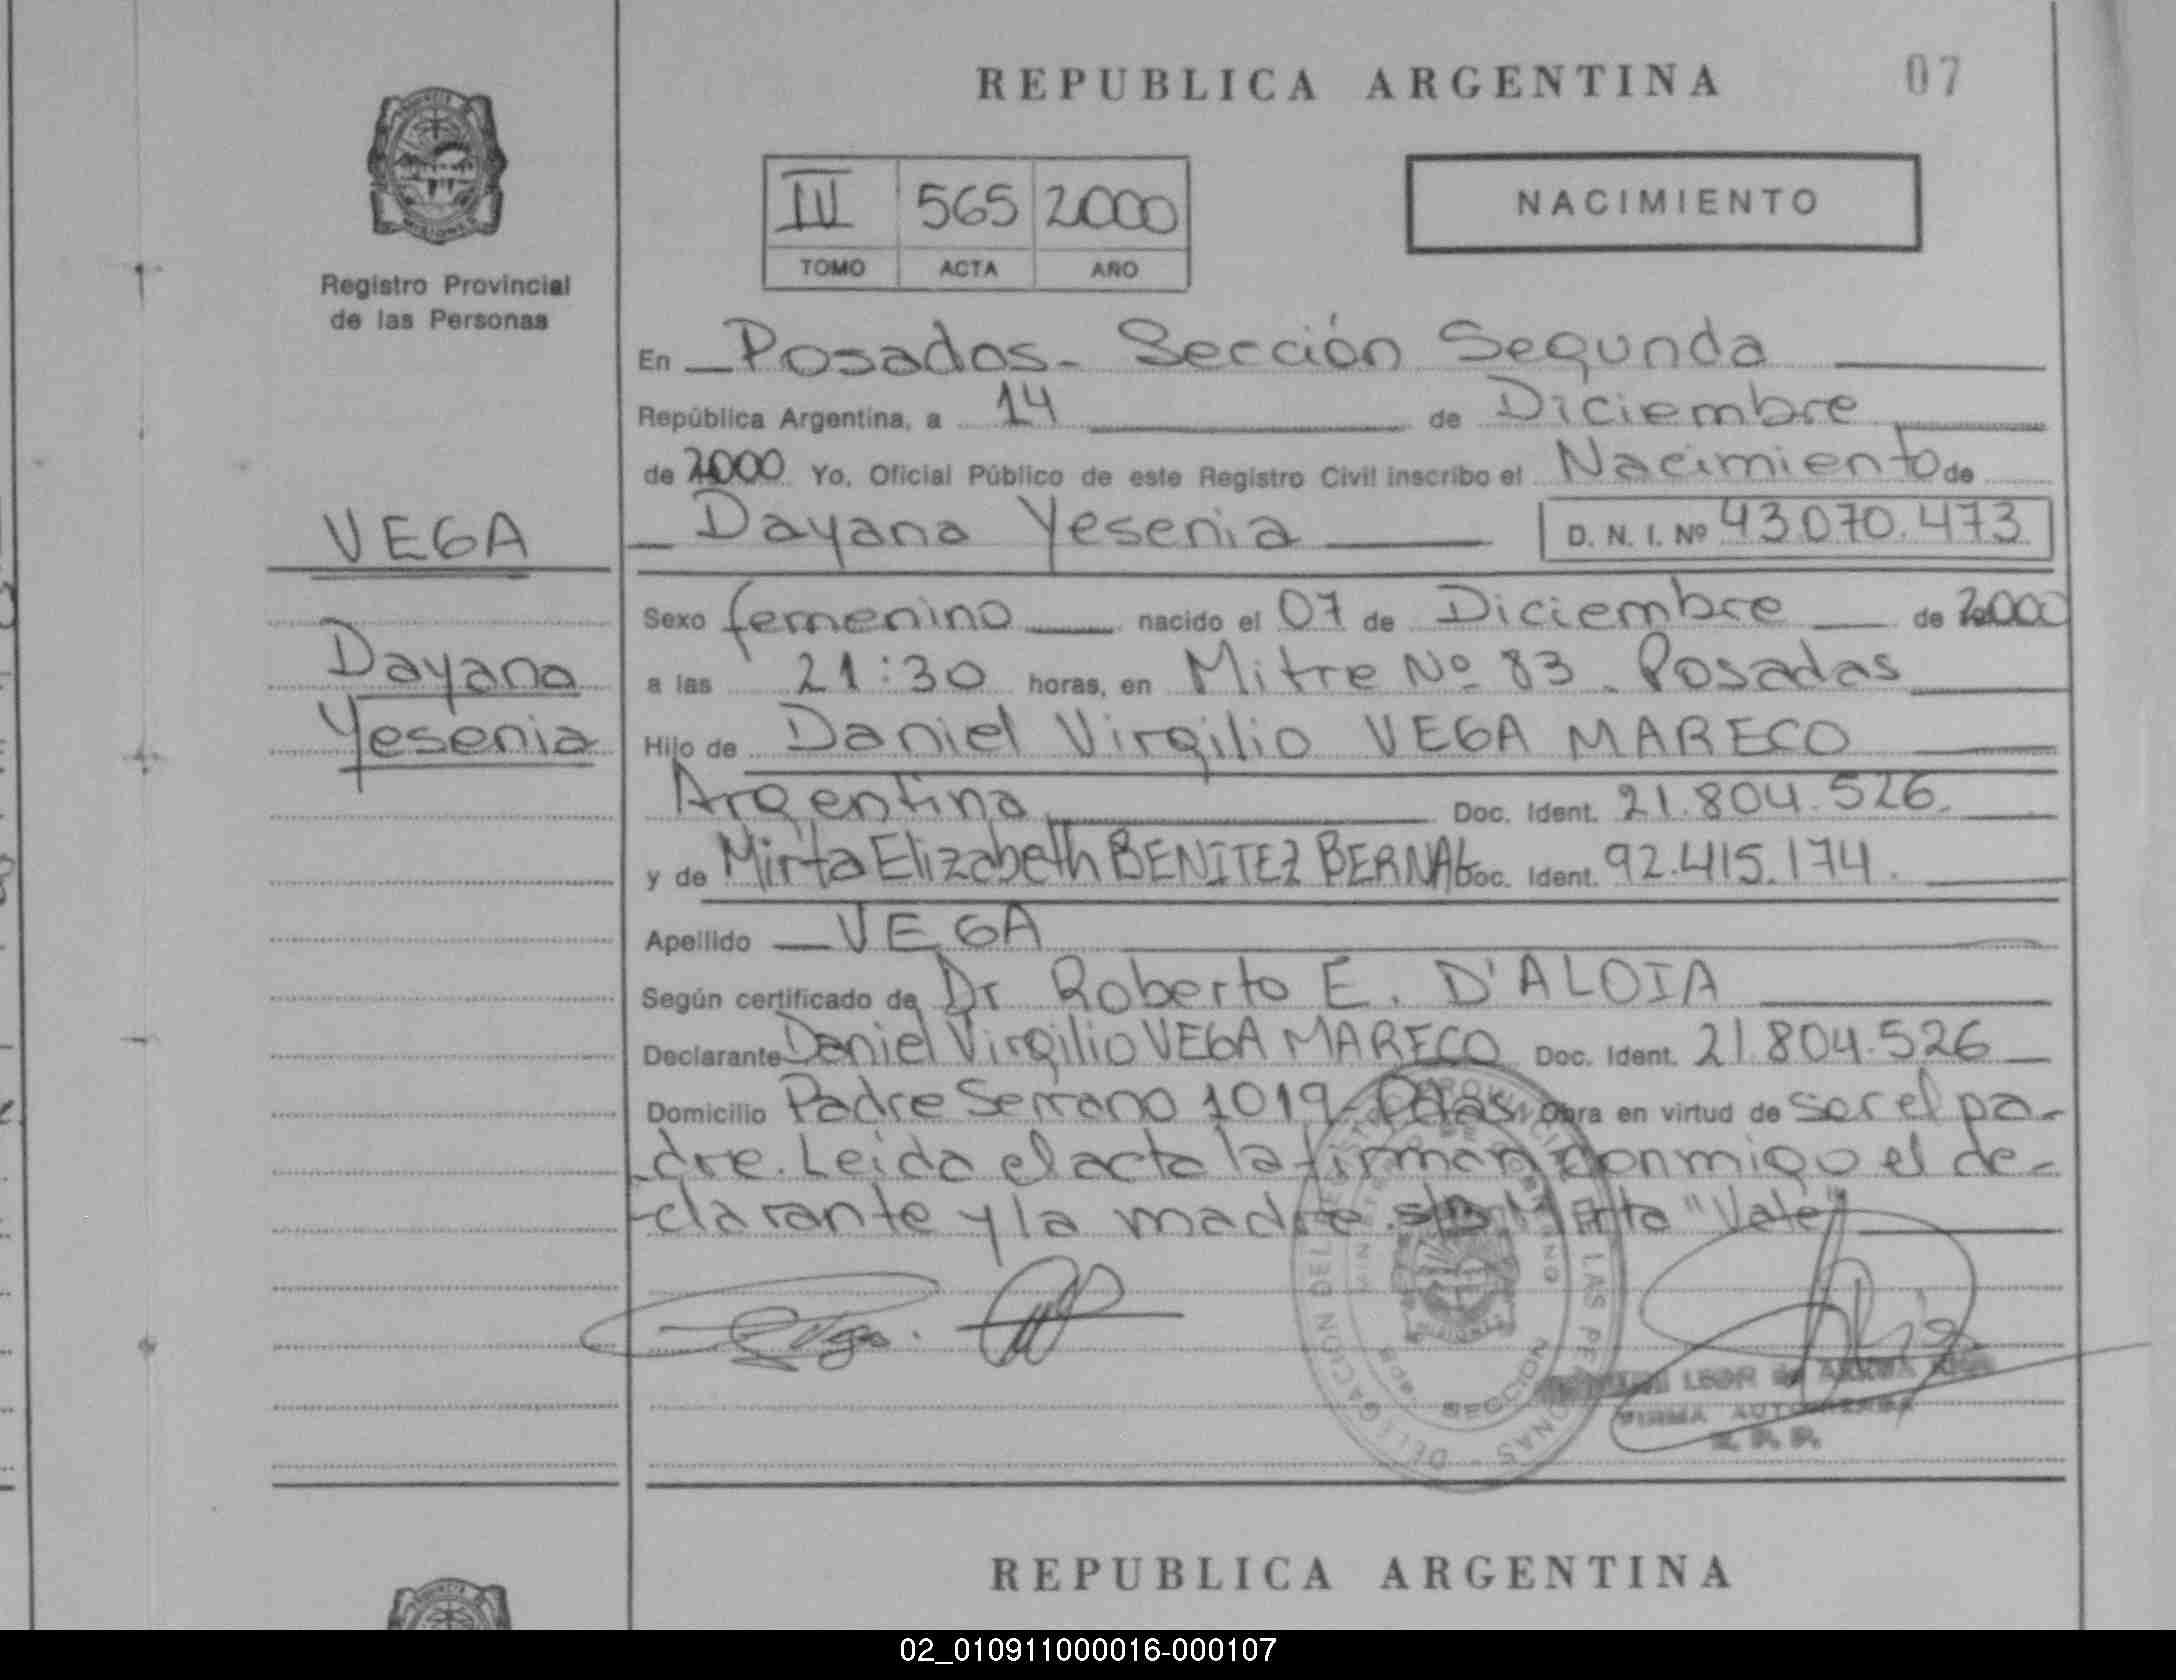 REPUBLICA ARGENTINA 07
III 565 2000
TOMO ACTA AÑO
NACIMIENTO
Registro Provincial
de las Personas
VEGA
Dayana
Yesenia
En Posadas - Sección Segunda
República Argentina, a 14 de Diciembre
de 2000 Yo, Oficial Público de este Registro Civil inscribo el Nacimiento de
Dayana Yesenia D. N. I. Nº 43.070.473
Sexo femenino nacido el 07 de Diciembre de 2000
a las 21:30 horas, en Mitre Nº 83 - Posadas
Hijo de Daniel Virgilio VEGA MARECO
Argentina Doc. Ident. 21.804.526.
y de Mirta Elizabeth BENITEZ BERNAL Doc. Ident. 92.415.174.
Apellido VEGA
Según certificado de Dr Roberto E. D'ALOIA
Declarante Daniel Virgilio VEGA MARECO Doc. Ident. 21.804.526
Domicilio Padre Serrano 1019 - Pdas Obra en virtud de ser el pa-
dre. Leida el acta la firman conmigo el de-
clarante y la madre. Mirta "Vale"
DELEGACION DEL REGISTRO PROVINCIAL DE LAS PERSONAS
SECCION
MISIONES
FIRMA AUTORIZADA
R. P. P.
REPUBLICA ARGENTINA
02_010911000016-000107